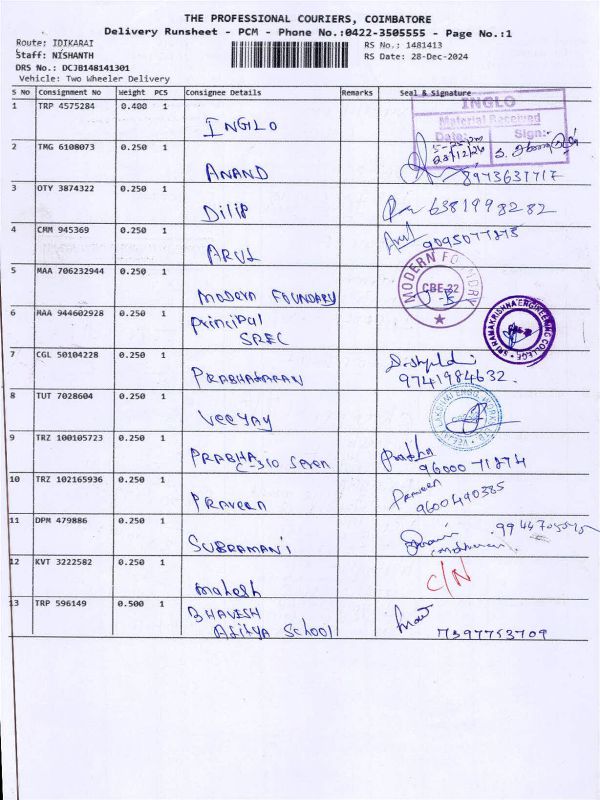 THE PROFESSIONAL COURIERS, COIMBATORE
Delivery Runsheet - PCM - Phone No.:0422-3505555 - Page No.:1
Route: IDIKARAI
RS No.: 1481413
Staff: NISHANTH
RS Date: 28-Dec-2024
DRS No.: DCJB148141301
Vehicle: Two Wheeler Delivery
S No Consignment No Weight PCS Consignee Details Remarks Seal & Signature
1 TRP 4575284 0.400 1 INGLO
INGLO
Material Received
Date: Sign:
5-25pm
28/12/24
2 TMG 6108073 0.250 1 ANAND 8973631717
3 OTY 3874322 0.250 1 Dilip 6381998282
4 CMM 945369 0.250 1 ARUL Arul 9095077875
5 MAA 706232944 0.250 1 MODERN FOUNDARY
MODERN FOUNDRY
CBE-22
6 MAA 944602928 0.250 1 Principal
SREC
SRI RAMAKRISHNA ENGINEERING COLLEGE
7 CGL 50104228 0.250 1 PRABHAKARAN 9741984632.
8 TUT 7028604 0.250 1 VEEJAY
9 TRZ 100105723 0.250 1 PRABHA
C-310 Seven
Prabha
96000 71874
10 TRZ 102165936 0.250 1 PRAVEEN
Parveen
9600490385
11 DPM 479886 0.250 1 SUBRAMANI
12 KVT 3222582 0.250 1 Mahesh C/N
13 TRP 596149 0.500 1 BHAVESH
Aditya School
7397753709